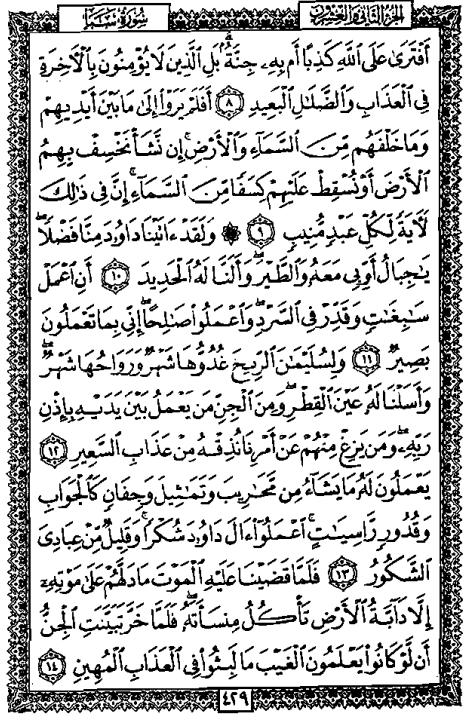 الجزء الثاني والعشرون
سورة سبإ
أَفْتَرَىٰ عَلَى اللَّهِ كَذِبًا أَم بِهِۦ جِنَّةٌۢ ۗ بَلِ الَّذِينَ لَا يُؤْمِنُونَ بِالْآخِرَةِ
فِي الْعَذَابِ وَالضَّلَٰلِ الْبَعِيدِ ٨ أَفَلَمْ يَرَوْا إِلَىٰ مَا بَيْنَ أَيْدِيهِمْ
وَمَا خَلْفَهُم مِّنَ السَّمَآءِ وَالْأَرْضِ ۚ إِن نَّشَأْ نَخْسِفْ بِهِمُ
الْأَرْضَ أَوْ نُسْقِطْ عَلَيْهِمْ كِسَفًا مِّنَ السَّمَآءِ ۚ إِنَّ فِي ذَٰلِكَ
لَآيَةً لِّكُلِّ عَبْدٍ مُّنِيبٍ ٩ ۞ وَلَقَدْ ءَاتَيْنَا دَاوُۥدَ مِنَّا فَضْلًا ۖ
يَٰجِبَالُ أَوِّبِي مَعَهُۥ وَالطَّيْرَ ۖ وَأَلَنَّا لَهُ الْحَدِيدَ ١٠ أَنِ اعْمَلْ
سَٰبِغَٰتٍ وَقَدِّرْ فِي السَّرْدِ ۖ وَاعْمَلُوا صَٰلِحًا ۖ إِنِّي بِمَا تَعْمَلُونَ
بَصِيرٌ ١١ وَلِسُلَيْمَٰنَ الرِّيحَ غُدُوُّهَا شَهْرٌ وَرَوَاحُهَا شَهْرٌ ۖ
وَأَسَلْنَا لَهُۥ عَيْنَ الْقِطْرِ ۖ وَمِنَ الْجِنِّ مَن يَعْمَلُ بَيْنَ يَدَيْهِ بِإِذْنِ
رَبِّهِۦ ۖ وَمَن يَزِغْ مِنْهُمْ عَنْ أَمْرِنَا نُذِقْهُ مِنْ عَذَابِ السَّعِيرِ ١٢
يَعْمَلُونَ لَهُۥ مَا يَشَآءُ مِن مَّحَٰرِيبَ وَتَمَٰثِيلَ وَجِفَانٍ كَالْجَوَابِ
وَقُدُورٍ رَّاسِيَٰتٍ ۚ اعْمَلُوٓا ءَالَ دَاوُۥدَ شُكْرًا ۚ وَقَلِيلٌ مِّنْ عِبَادِيَ
الشَّكُورُ ١٣ فَلَمَّا قَضَيْنَا عَلَيْهِ الْمَوْتَ مَا دَلَّهُمْ عَلَىٰ مَوْتِهِۦٓ
إِلَّا دَآبَّةُ الْأَرْضِ تَأْكُلُ مِنسَأَتَهُۥ ۖ فَلَمَّا خَرَّ تَبَيَّنَتِ الْجِنُّ
أَن لَّوْ كَانُوا يَعْلَمُونَ الْغَيْبَ مَا لَبِثُوا فِي الْعَذَابِ الْمُهِينِ ١٤
٤٢٩